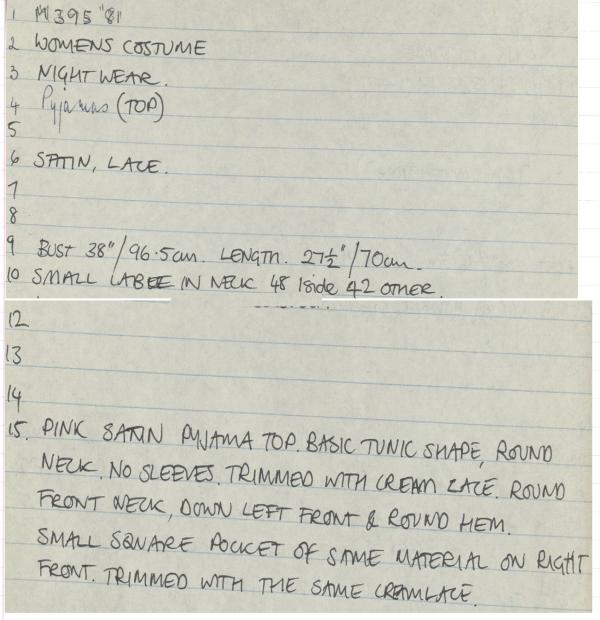 1 M395 "81
2 WOMENS COSTUME
3 NIGHTWEAR.
4 Pyjamas (TOP)
5
6 SATIN, LACE.
7
8
9 BUST 38"/96.5cm. LENGTH. 27½"/70cm.
10 SMALL LABEL IN NECK 48 1side 42 OTHER.
12
13
14
15. PINK SATIN PYJAMA TOP. BASIC TUNIC SHAPE, ROUND
NECK. NO SLEEVES. TRIMMED WITH CREAM LACE. ROUND
FRONT NECK, DOWN LEFT FRONT & ROUND HEM.
SMALL SQUARE POCKET OF SAME MATERIAL ON RIGHT
FRONT. TRIMMED WITH THE SAME CREAM LACE.